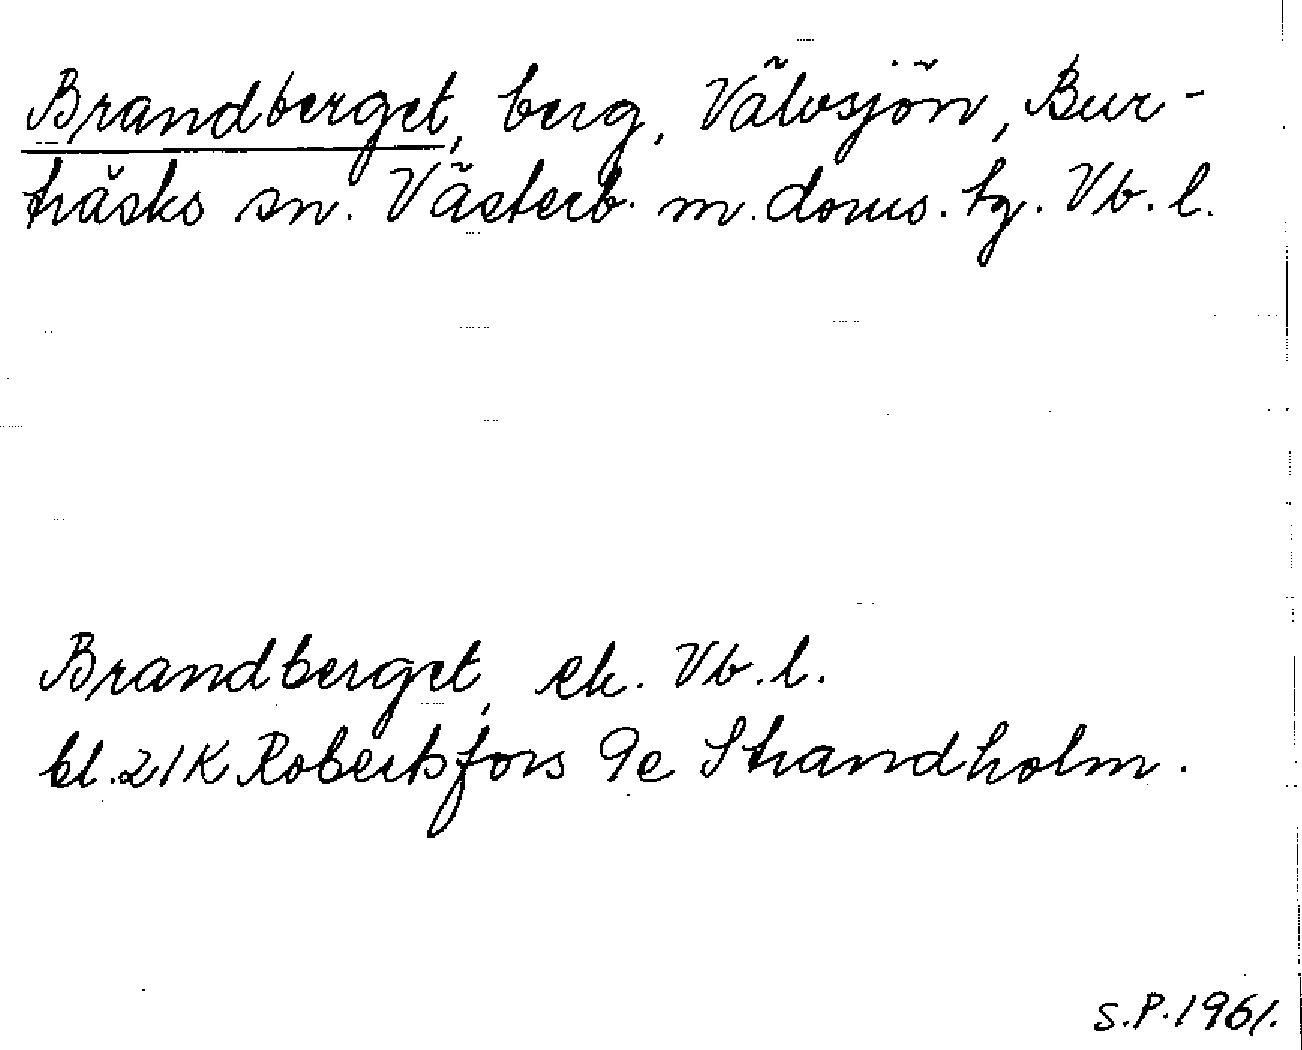 Brandberget, berg, Välvsjön, Bur-
träsks sn. Västerb. m. doms. tg. Vb. l.
Brandberget, ek. Vb. l.
bl. 21K Robertsfors 9e Strandholm.
S.P. 1961.